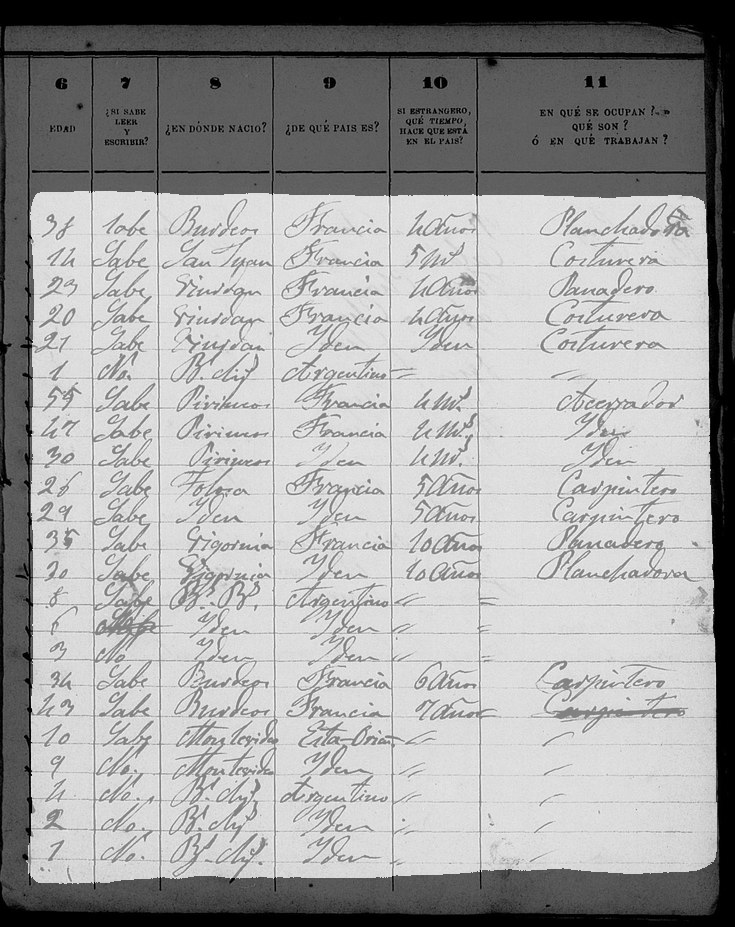 6 7 8 9 10 11
EDAD ¿SI SABE LEER Y ESCRIBIR? ¿EN DÓNDE NACIO? ¿DE QUÉ PAIS ES? SI ESTRANGERO, QUÉ TIEMPO, HACE QUE ESTÁ EN EL PAIS? EN QUÉ SE OCUPAN? QUÉ SON? Ó EN QUÉ TRABAJAN?
38 Sabe Burdeos Francia 4 Años Planchadora
14 Sabe San Francia 5 Costurera
23 Sabe Francia 4 Años Panadero
20 Sabe Francia 4 Años Costurera
21 Sabe Yden Yden Costurera
1 No. Argentino "
55 Sabe Pirineos Francia 4 Acerrador
47 Sabe Pirineos Francia 4 Yden
30 Sabe Pirineos Yden 4 Yden
26 Sabe Tolosa Francia 5 Años Carpintero
29 Sabe Yden Yden 5 Años Carpintero
35 Sabe Francia 10 Años Panadero
30 Sabe Yden 10 Años Planchadora
8 Sabe Argentino " =
6 Yden Yden " =
3 No Yden Yden " =
34 Sabe Burdeos Francia 6 Años Carpintero
43 Sabe Burdeos Francia 7 Años Carpintero
10 Sabe Montevideo "
9 No. Montevideo Yden "
4 No. Argentino "
2 No. Yden "
1 No. Yden "